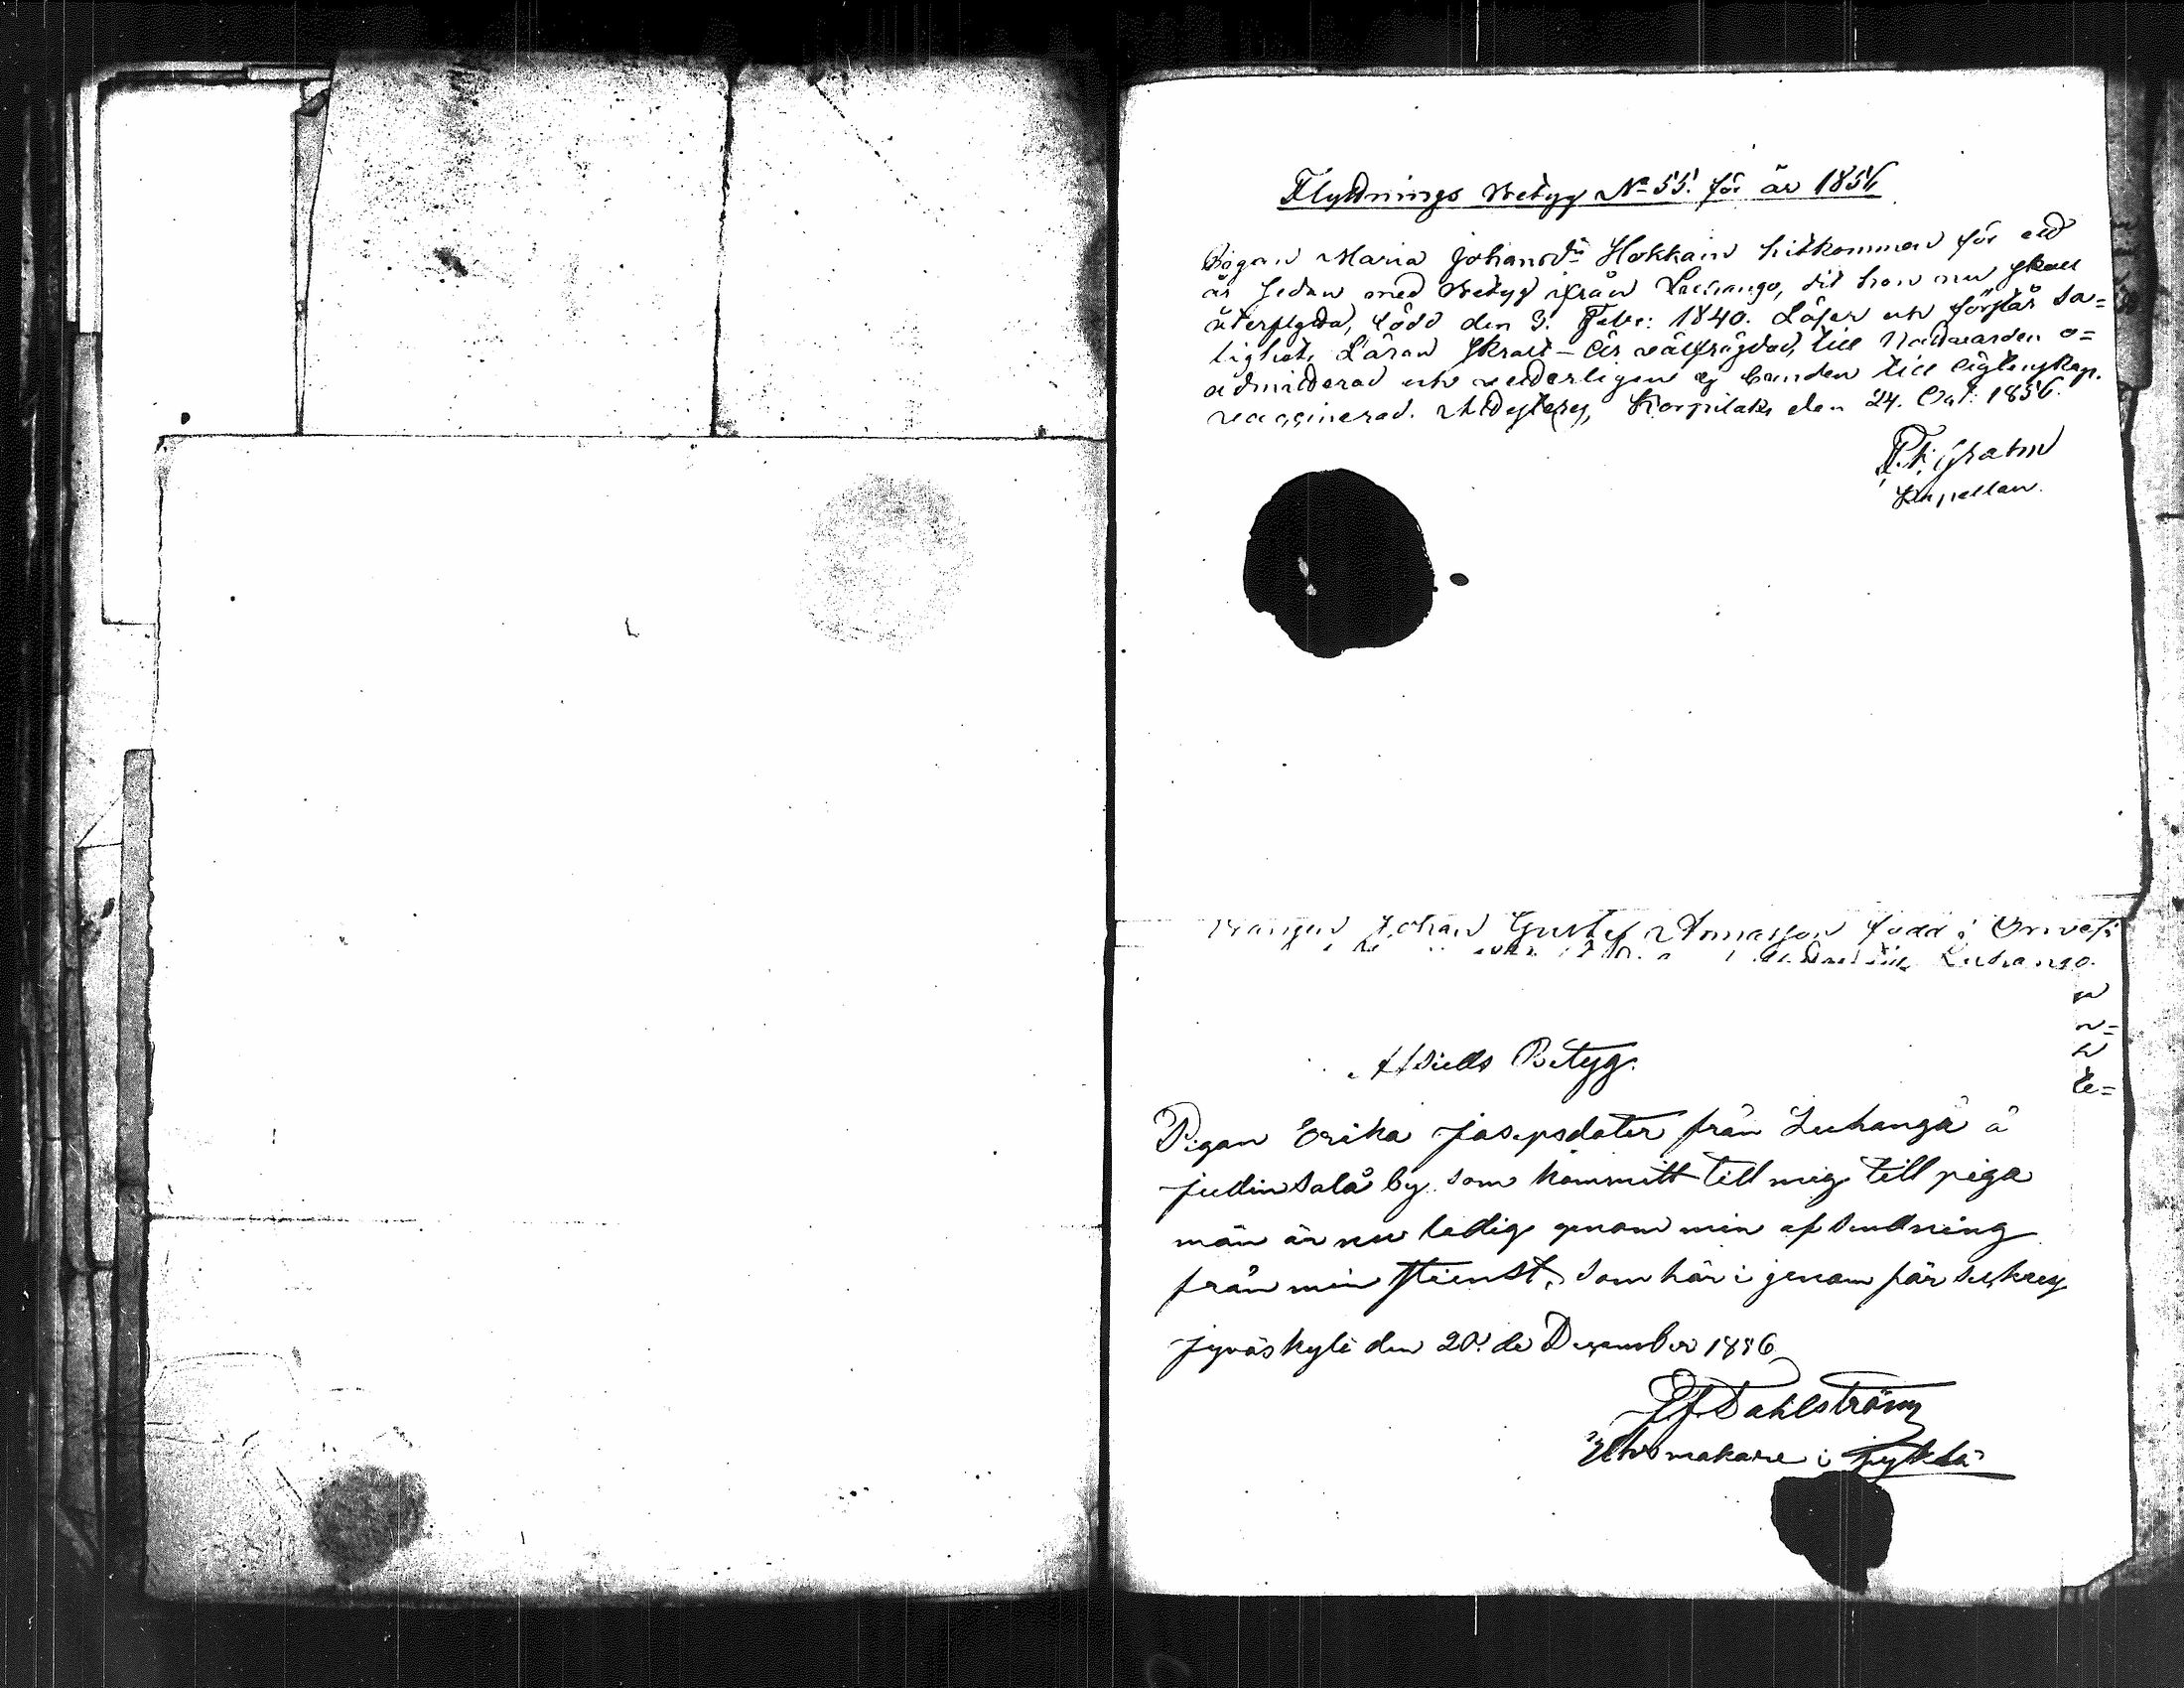 Flyttnings Betyg No 55. för år 1856
Pigan Maria Johansdr Hokkain hitkommen för ett
år sedan med Betyg ifrån Luhango, dit hon nu skall
återflytta, född den 3. Febr: 1840. Läser och förstår sa=
lighets Läran Skralt – är välfrägdad, till Nattvarden o=
admitterad och vederligen ej bunden till ägtenskap.
vaccinerad. Attesterar, Korpilaks den 24. Oct: 1856.
Grahn
Kapellan.
Drängen Johan Gustaf Thomasson född i Orivesi
Luhango.
n=
te=
Afskeds Betyg.
Pigan Erika Josepsdoter från Luhanga å
Judinsalå by som kommitt till mig till piga
män är nu ledig genom min afsendning
från min tienst, som här i genom får
Jyväskylä den 20 de December 1856
Dahlström
Uhrmakare i Jyklä